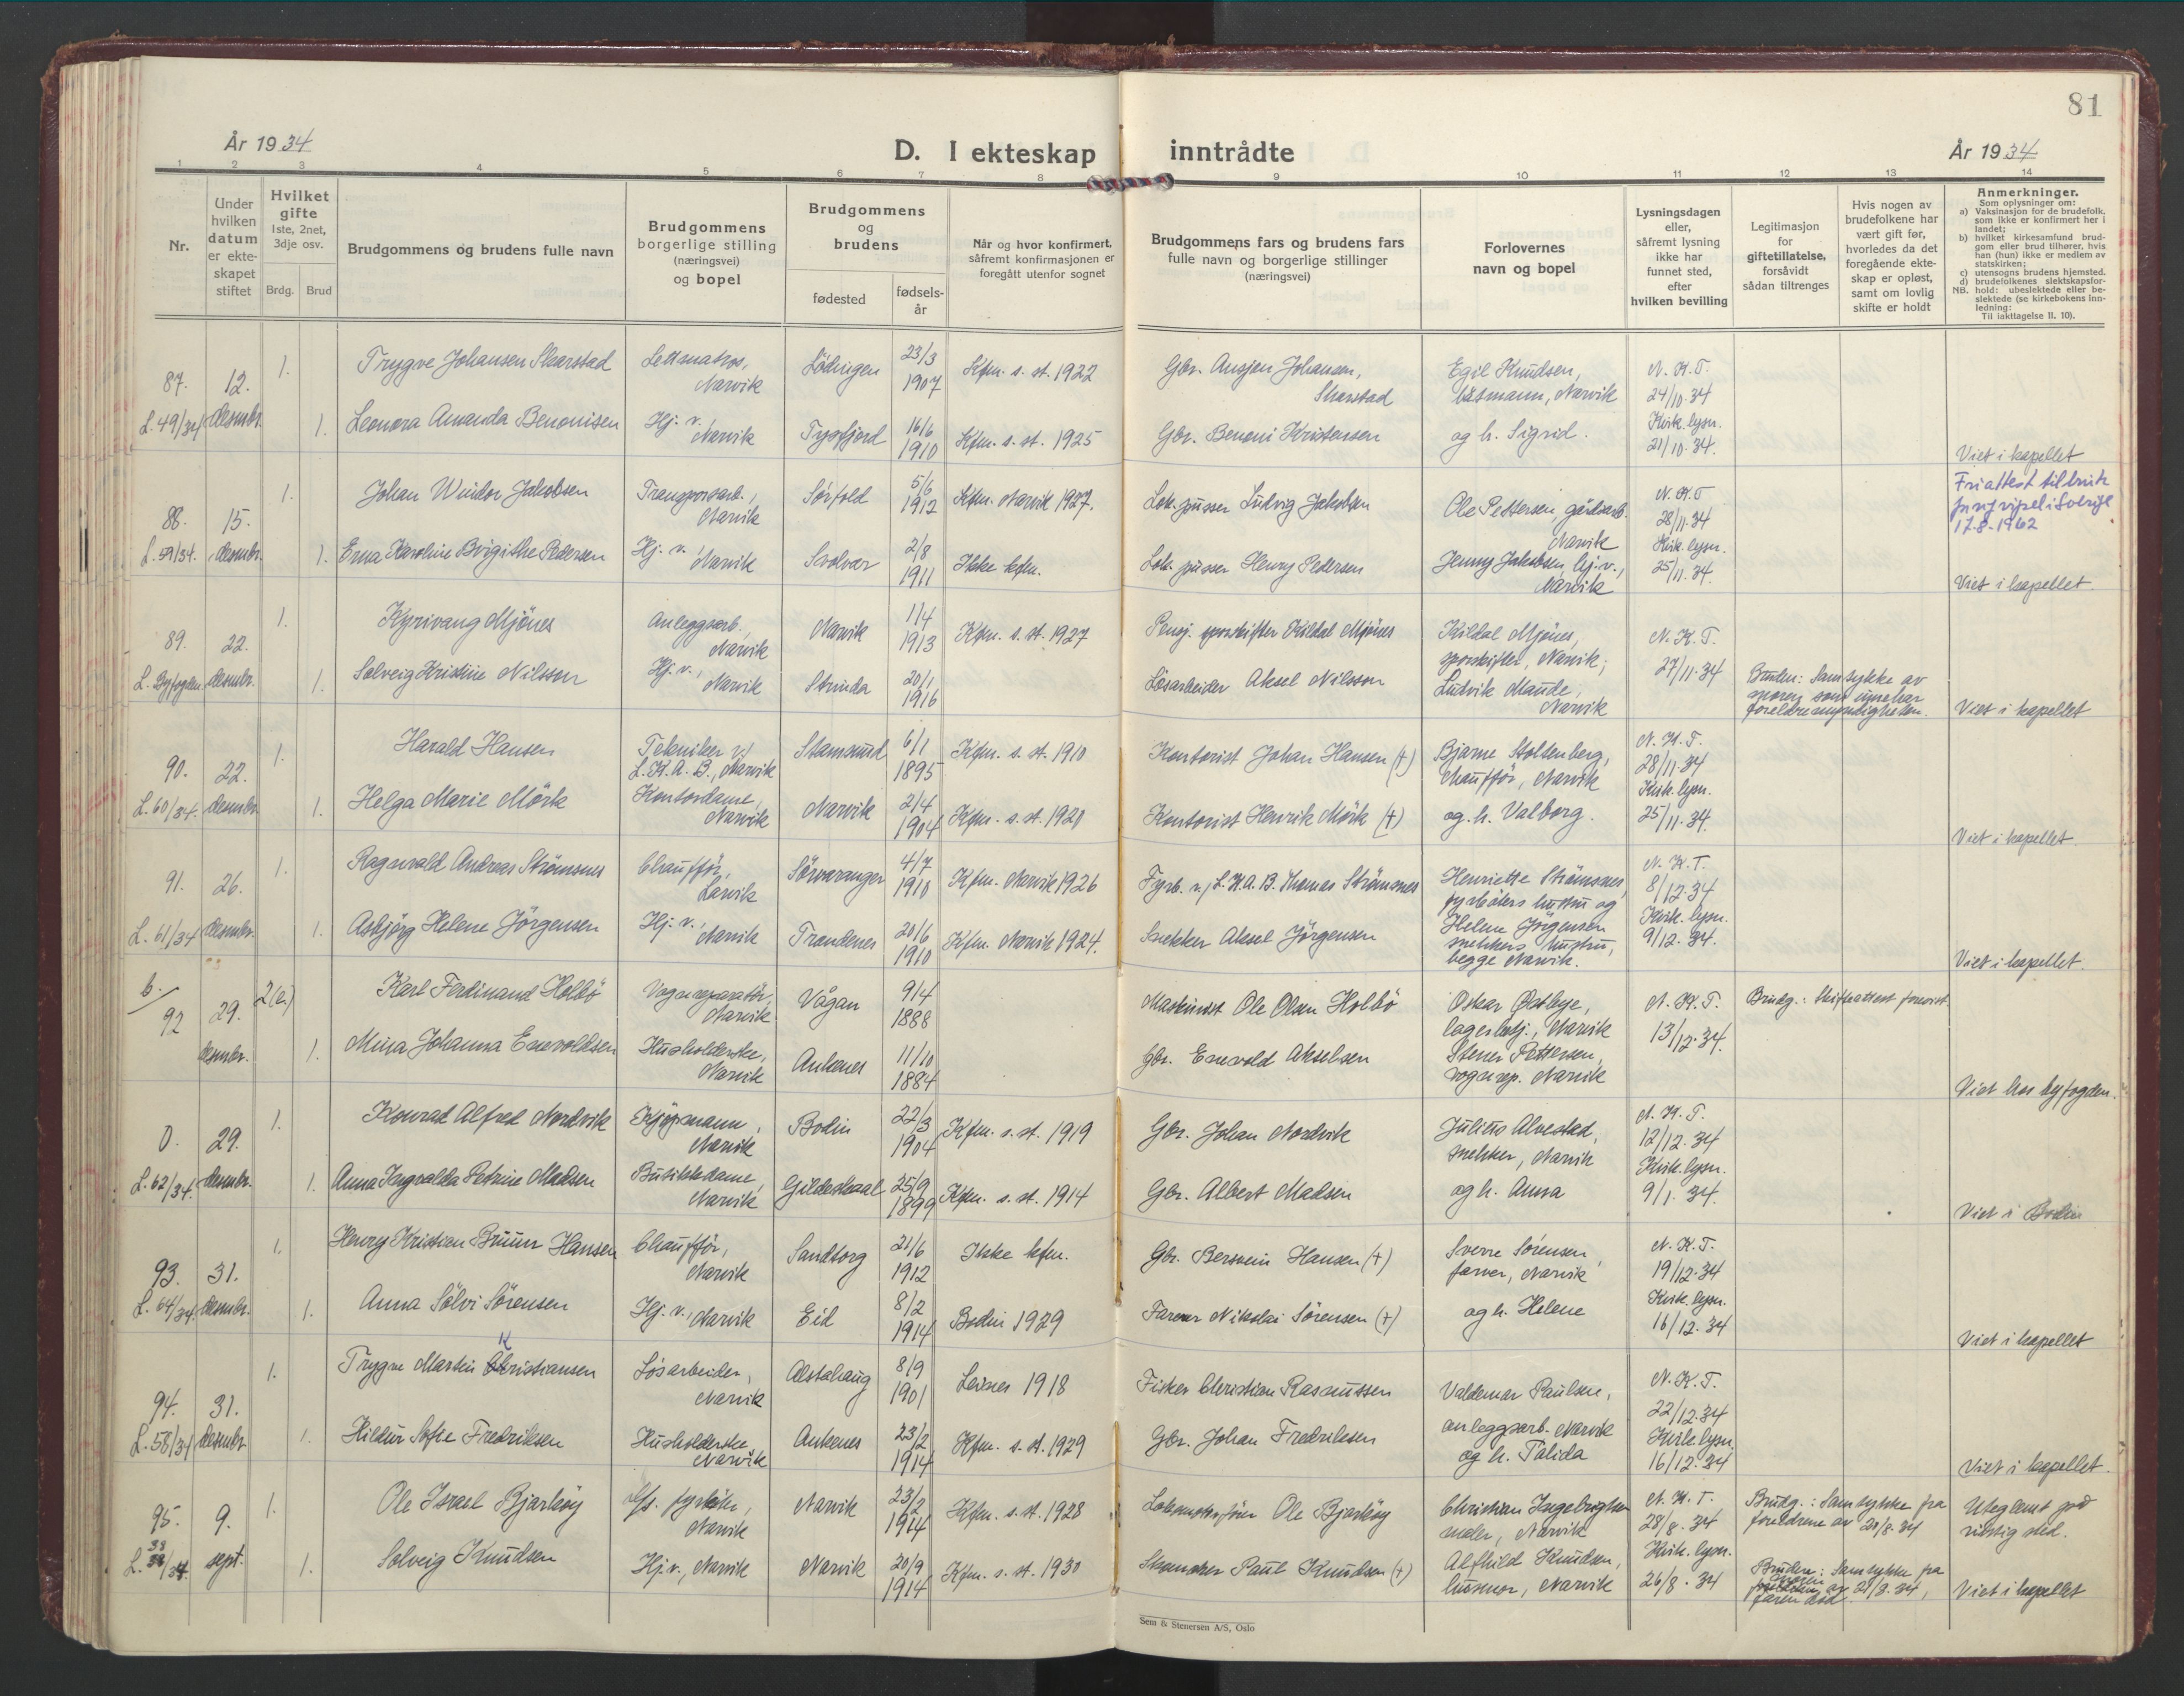 81
År 1934
D. I ekteskap inntrådte
År 1934
1 2 3 4 5 6 7 8 9 10 11 12 13 14
Nr.
Under hvilken datum er ekte-skapet stiftet
Hvilket gifte 1ste, 2net, 3dje osv.
Brdg. Brud
Brudgommens og brudens fulle navn
Brudgommens borgerlige stilling (næringsvei) og bopel
Brudgommens og brudens
fødested
fødsels-år
Når og hvor konfirmert, såfremt konfirmasjonen er foregått utenfor sognet
Brudgommens fars og brudens fars fulle navn og borgerlige stillinger (næringsvei)
Forlovernes navn og bopel
Lysningsdagen eller, såfremt lysning ikke har funnet sted, efter hvilken bevilling
Legitimasjon for giftetillatelse, forsåvidt sådan tiltrenges
Hvis nogen av brudefolkene har vært gift før, hvorledes da det foregående ekte-skap er opløst, samt om lovlig skifte er holdt
Anmerkninger.
Som oplysninger om:
a) Vaksinasjon for de brudefolk, som ikke er konfirmert her i landet;
b) hvilket kirkesamfund brud-gom eller brud tilhører, hvis han (hun) ikke er medlem av statskirken;
c) utensogns brudens hjemsted.
d) brudefolkenes slektskapsfor-hold: ubeslektede eller be-slektede (se kirkebokens Inn-ledning:
NB.
Til iakttagelse II. 10).
87. 12. 1. Trygve Johansen Skarstad Lettmatros, Narvik Lödingen 23/3 1907 Kfm. s. st. 1922 Gbr. Ansjen Johansen, Skarstad Egil Knudsen, Narvik N. K. T. 24/10.34
L.49/34 desembr. 1. Leonora Amanda Benonisen Hj. v., Narvik Tysfjord 16/6 1910 Kfm. s. st. 1925 Gbr. Benoni Kristensen og h. Sigrid. Kirk. lysn. 21/10.34. Viet i kapellet
88. 15. 1. Johan Windor Jakobsen Transportarb., Narvik Sørfold 5/6 1912 Kfm. Narvik 1927. Lok. pusser Ludvig Jakobsen Ole Pettersen, gårdsarb. Narvik N. K. T 28/11.34 Friattest til bruk 17-8-1962
L.59/34. desembr. 1. Erna Karoline Birgithe Pedersen Hj. v., Narvik Svolvær 2/8 1911 Ikke kfm. Lok. pusser Henry Pedersen Jenny Jakobsen, hj.v., Narvik Kirk. lysn. 25/11.34. Viet i kapellet.
89. 22. 1. Kyrivang Mjönes Anleggsarb., Narvik Narvik 1/4 1913 Kfm. s. st. 1927 Pensj. sporskifter Kildal Mjönes Kildal Mjönes, sporskifter, Narvik; N. K. T. 27/11.34
L. Byfogden desembr. 1. Solveig Kristine Nilsson Hj. v., Narvik Strinda 20/1 1916 Lösarbeider Aksel Nilsson Ludvik Maude, Narvik Bruden: Samtykke av moren som innehar foreldremyndigheten. Viet i kapellet
90. 22. 1. Harald Hansen Tekniker v/ L.K.A.B., Narvik Stamsund 6/1 1895 Kfm. s. st. 1910 Kontorist Johan Hansen (+) Bjarne Stoltenberg, chaufför, Narvik N. K. T. 28/11.34
L.60/34. desembr. 1. Helga Marie Mörk Kontordame, Narvik Narvik 2/4 1904 Kfm. s. st. 1920 Kontorist Henrik Mörk (+) og. h. Valborg. Kirk. lysn. 25/11.34. Viet i kapellet.
91. 26. 1. Ragnvald Andreas Strömsnes Chauffør, Larvik Sörvaranger 4/7 1910 Kfm. Narvik 1926 Fyrb. v/ L.K.A.B. Thomas Strömsnes Henriette Strömsnes, fyrböters hustru og N. K. T. 8/12.34
L.61/34 desembr. 1. Asbjørg Helene Jörgensen Hj. v., Narvik Trondenes 20/6 1910 Kfm. Narvik 1924. Snekker Aksel Jörgensen Helene Jörgensen snekkers hustru, begge Narvik. Kirk. lysn. 9/12.34. Viet i kapellet.
b. 92 29. 2(e.) Karl Ferdinand Holbö Vognreparatör, Narvik Vågan 9/4 1888 Maskinist Ole Olsen Holbö Oskar Østbye, lagerbetj., Narvik N. K. T. 13/12.34. Brudg.: Skifteattest forevist.
desembr. 1. Mina Johanna Enevoldsen Husholderske, Narvik Ankenes 11/10 1884 Gbr. Enevold Akselsen Stener Pettersen, vognrep. Narvik Viet hos byfogden.
0. 29. 1. Konrad Alfred Nordvik Kjöpmann, Narvik Bodin 22/3 1904 Kfm. s. st. 1919 Gbr. Johan Nordvik Julius Alvestad, snekker, Narvik N. K. T. 12/12.34
L.62/34. desembr. 1. Anna Ingvalda Petrine Madsen Butikkdame, Narvik Gildeskaal 25/9 1899 Kfm. s. st. 1914 Gbr. Albert Madsen og h. Anna Kirk. lysn. 9/1.34. Viet i Bodin
93. 31. 1. Henry Kristian Bruun Hansen Chauffør, Narvik Sandtorg 21/6 1912 Ikke kfm. Gbr. Bersvein Hansen (+) Sverre Sørensen, farver, Narvik N. K. T. 19/12.34
L.64/34. desembr. 1. Anna Sölvi Sörensen Hj. v., Narvik Eid 8/2 1914 Bodin 1929 Farver Nikolai Sörensen (+) og h. Helene Kirk. lysn. 16/12.34 Viet i kapellet
94. 31. 1. Trygve Martin Kristiansen Lösarbeider, Narvik Alstahaug 8/9 1901 Leines 1918 Fisker Christian Rasmussen Valdemar Paulsen, anleggsarb. Narvik N. K. T. 22/12.34
L.58/34 desembr 1. Hildur Sofie Fredriksen Husholderske, Narvik Ankenes 23/2 1914 Kfm. s. st. 1929 Gbr. Johan Fredriksen og h. Talida Kirk. lysn. 16/12.34 Viet i kapellet.
95. 9. 1. Ole Israel Bjarköy fyrböter, Narvik Narvik 23/2 1914 Kfm. s. st. 1928 Lokomotivförer Ole Bjarköy Christian Ingebrigtsen maler, Narvik N. K. T. 28/8.34 Brudg.: Samtykke fra foreldrene av 20/8.34 Uteglemt på riktig sted.
L.38/34. sept. 1. Solveig Knudsen Hj.v., Narvik Narvik 20/9 1914 Kfm. s. st. 1930 Skomaker Paul Knudsen (+) Alfhild Knudsen, husmor, Narvik Kirk. lysn. 26/8.34 Bruden: Samtykke fra moren av 21/8.34, faren död. Viet i kapellet
Sem & Stenersen A/S, Oslo